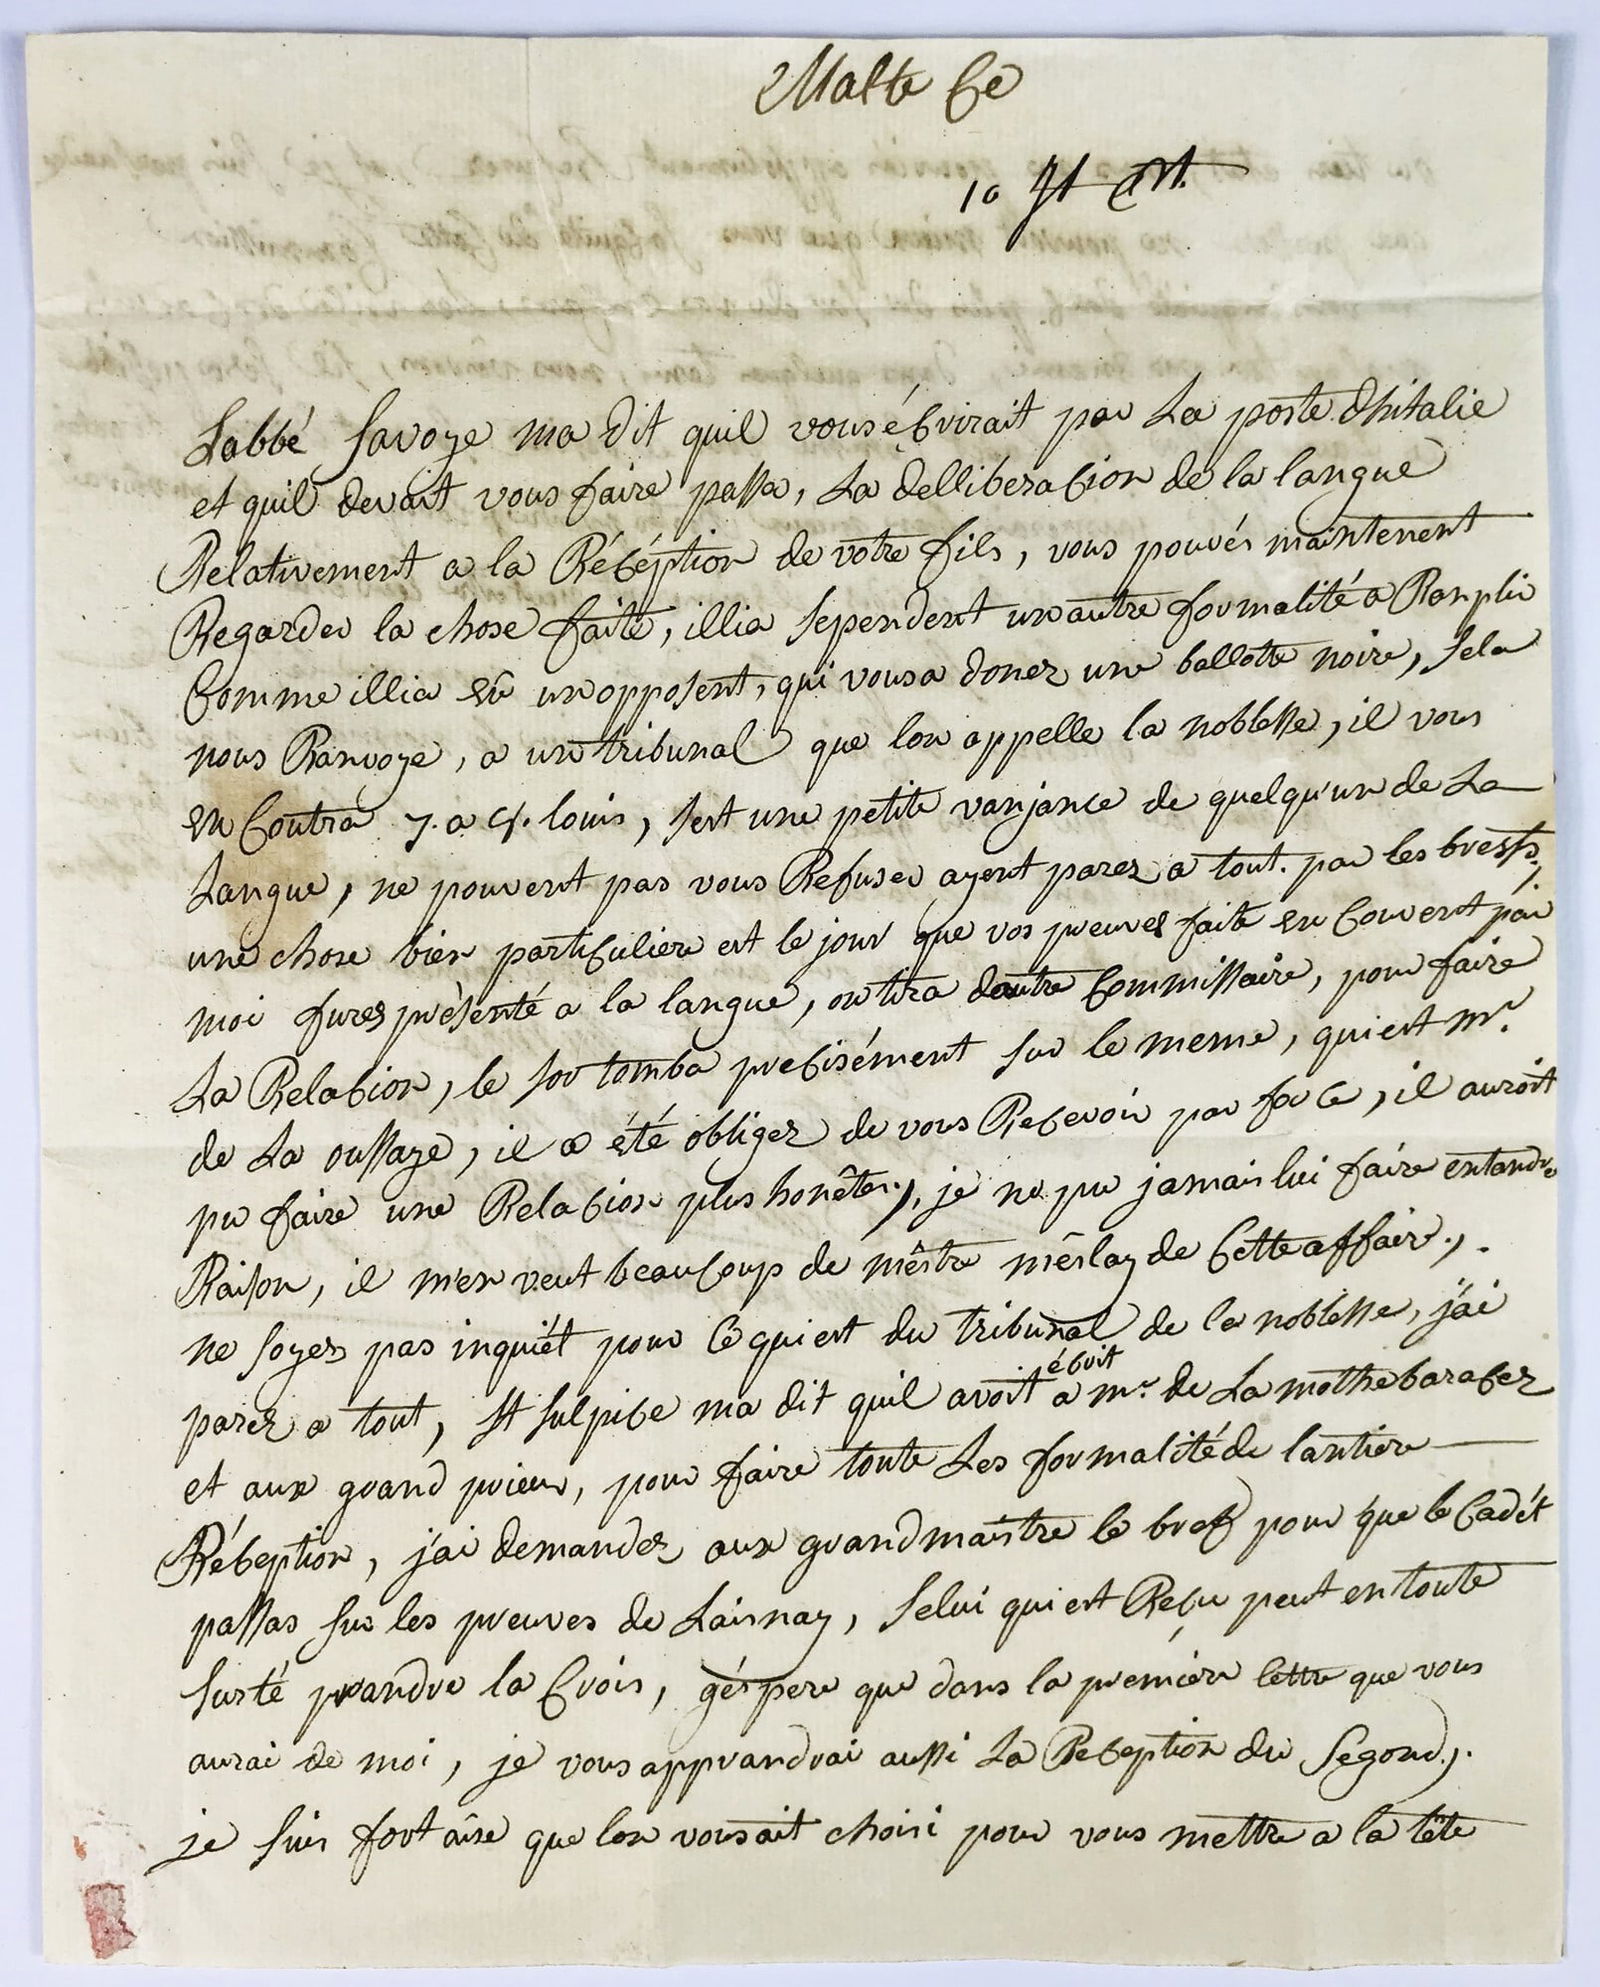 Malte Ce
10
Labbé Savoye ma dit quil vous écrirait par La poste dhitalie
et quil devait vous faire passa, La delliberacion de la langue
Relativement a la Récéption de votre fils, vous pouvés maintenent
Regarder la chose faite, illia sependent un autre formalité a Ranplir
Comme illia eû un opposent, qui vous a donez une ballotte noire, sela
nous Ranvoye, a un tribunal que lon appelle la noblesse, il vous
en Coutra 7. a louis, sest une petite vanjance de quelqu'un de La
Langue, ne pouvent pas vous Refuser ayent parez a tout. par les brefs,
une chose bien particuliere est le jour que vos preuves faite en Couvent par
moi fures présenté a la langue, on tira dautre Commissaire, pour faire
La Relacion, le sor tomba precisément sur le meme, qui est mr.
de La oussaye, il a été obligez de vous Recevoir par force, il auroit
pu faire une Relacion plus honête, je ne pu jamais lui faire entandre
Raison, il m'en veut beaucoup de mêtre mêlay de Cette affair.
ne soyes pas inquiét pour Ce qui est du tribunal de la noblesse, j'ai
parez a tout, St sulpice ma dit quil avoit écrit a mr. de La mothe baracez
et aux grand prieur, pour faire toute Les formalité de lantiere
Réception, j'ai demandez aux grand maistre le bref pour que le Cadét
passas sur les preuves de Laisnay, selui qui est Reçu peut en toute
surté prandre la Crois, géspere que dans la premiere lettre que vous
aurai de moi, je vous apprandrai aussi La Reception du Segond.
je suis fort aise que lon vous ait choisi pour vous mettre a la tête